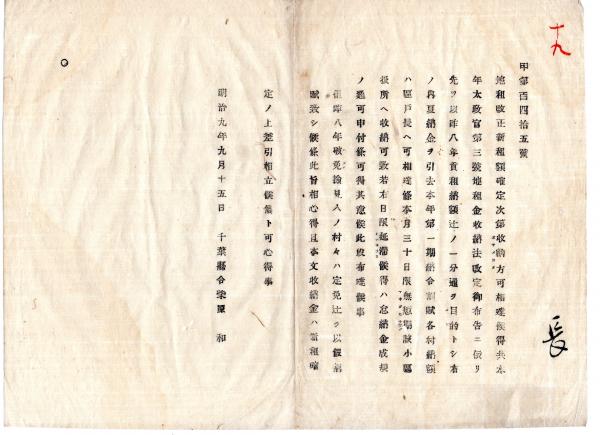 十九
甲第百四拾五號
地租改正新租額確定次第收納方可相達候得共本
年太政官第三號地租金收納法改定御布告ニ依リ
先ヲ以昨八年貢租納額辻ノ一分通ヲ目的トシ右
ノ內夏納金ヲ引去本年第一期納合割賦各村納額
ハ區戶長ヘ可相達條本月三十日限無怠小區
役所ヘ收納可致若右日限延滯候得ハ怠納金成規
ノ通可申付條可得其意候此段布達候事
但昨八年破免檢見入ノ村々ハ定免辻ヲ以假納
賦致シ候條此旨相心得且本文收納金ハ新租確
定ノ上差引相立候儀ト可心得事
明治九年九月十五日 千葉縣令柴原 和
長